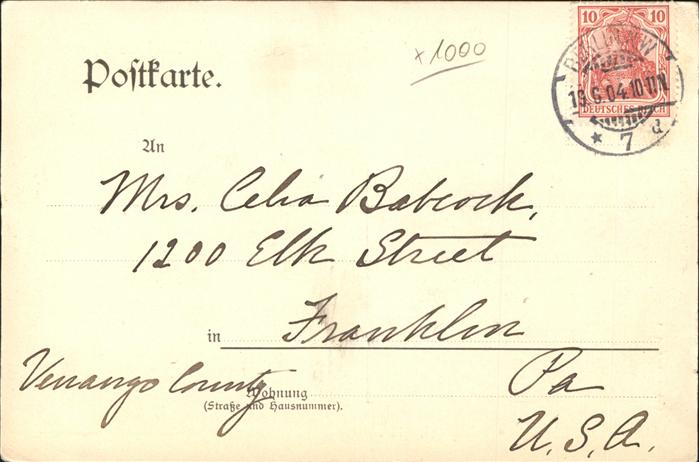 10 10
×1000
BERLIN W
Postkarte.
19.6.04.10-11N.
DEUTSCHES REICH
* 7 d.
An
Mrs. Celia Babcock,
1200 Elk Street
in Franklin
Venango County Pa
Wohnung
(Straße und Hausnummer).
U.S.A.